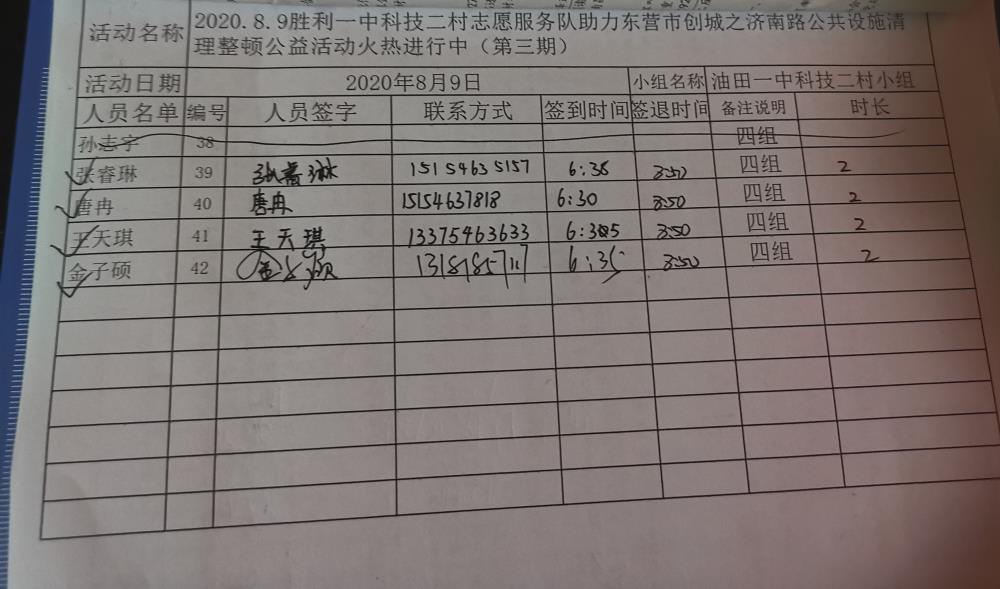 活动名称 2020.8.9胜利一中科技二村志愿服务队助力东营市创城之济南路公共设施清
理整顿公益活动火热进行中（第三期）
活动日期 2020年8月9日 小组名称 油田一中科技二村小组
人员名单 编号 人员签字 联系方式 签到时间 签退时间 备注说明 时长
孙志宇 38 四组
张睿琳 39 张睿琳 15154635157 6:38 8:50 四组 2
唐冉 40 唐冉 15154637818 6:30 8:50 四组 2
王天琪 41 王天琪 13375463633 8:50 四组 2
金子硕 42 金子硕 6:35 8:50 四组 2